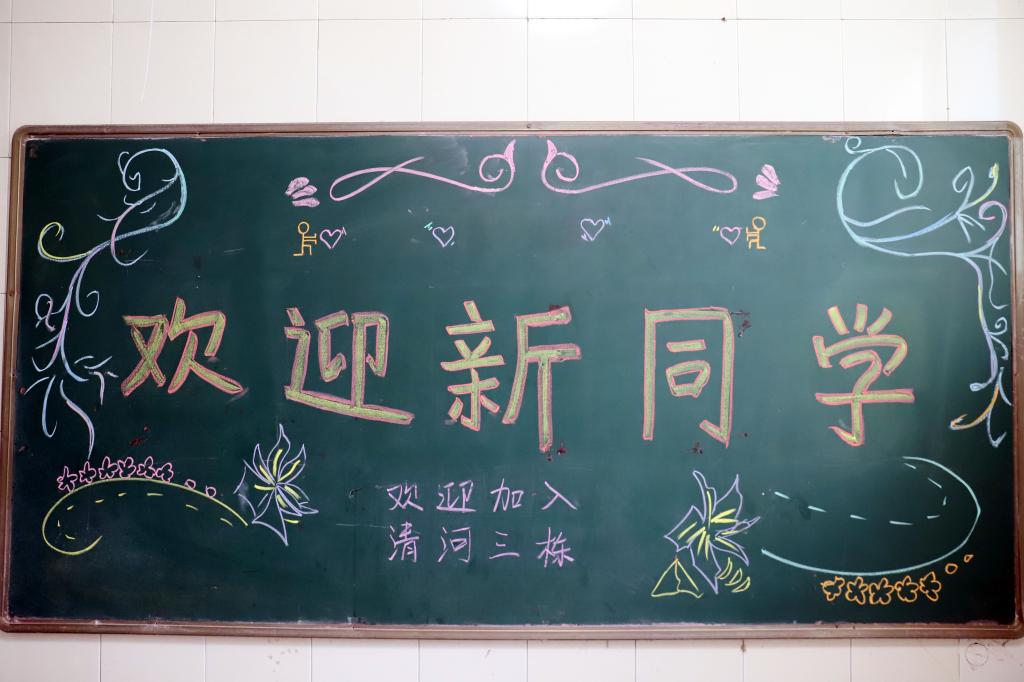 欢迎新同学
欢迎加入
清河三栋